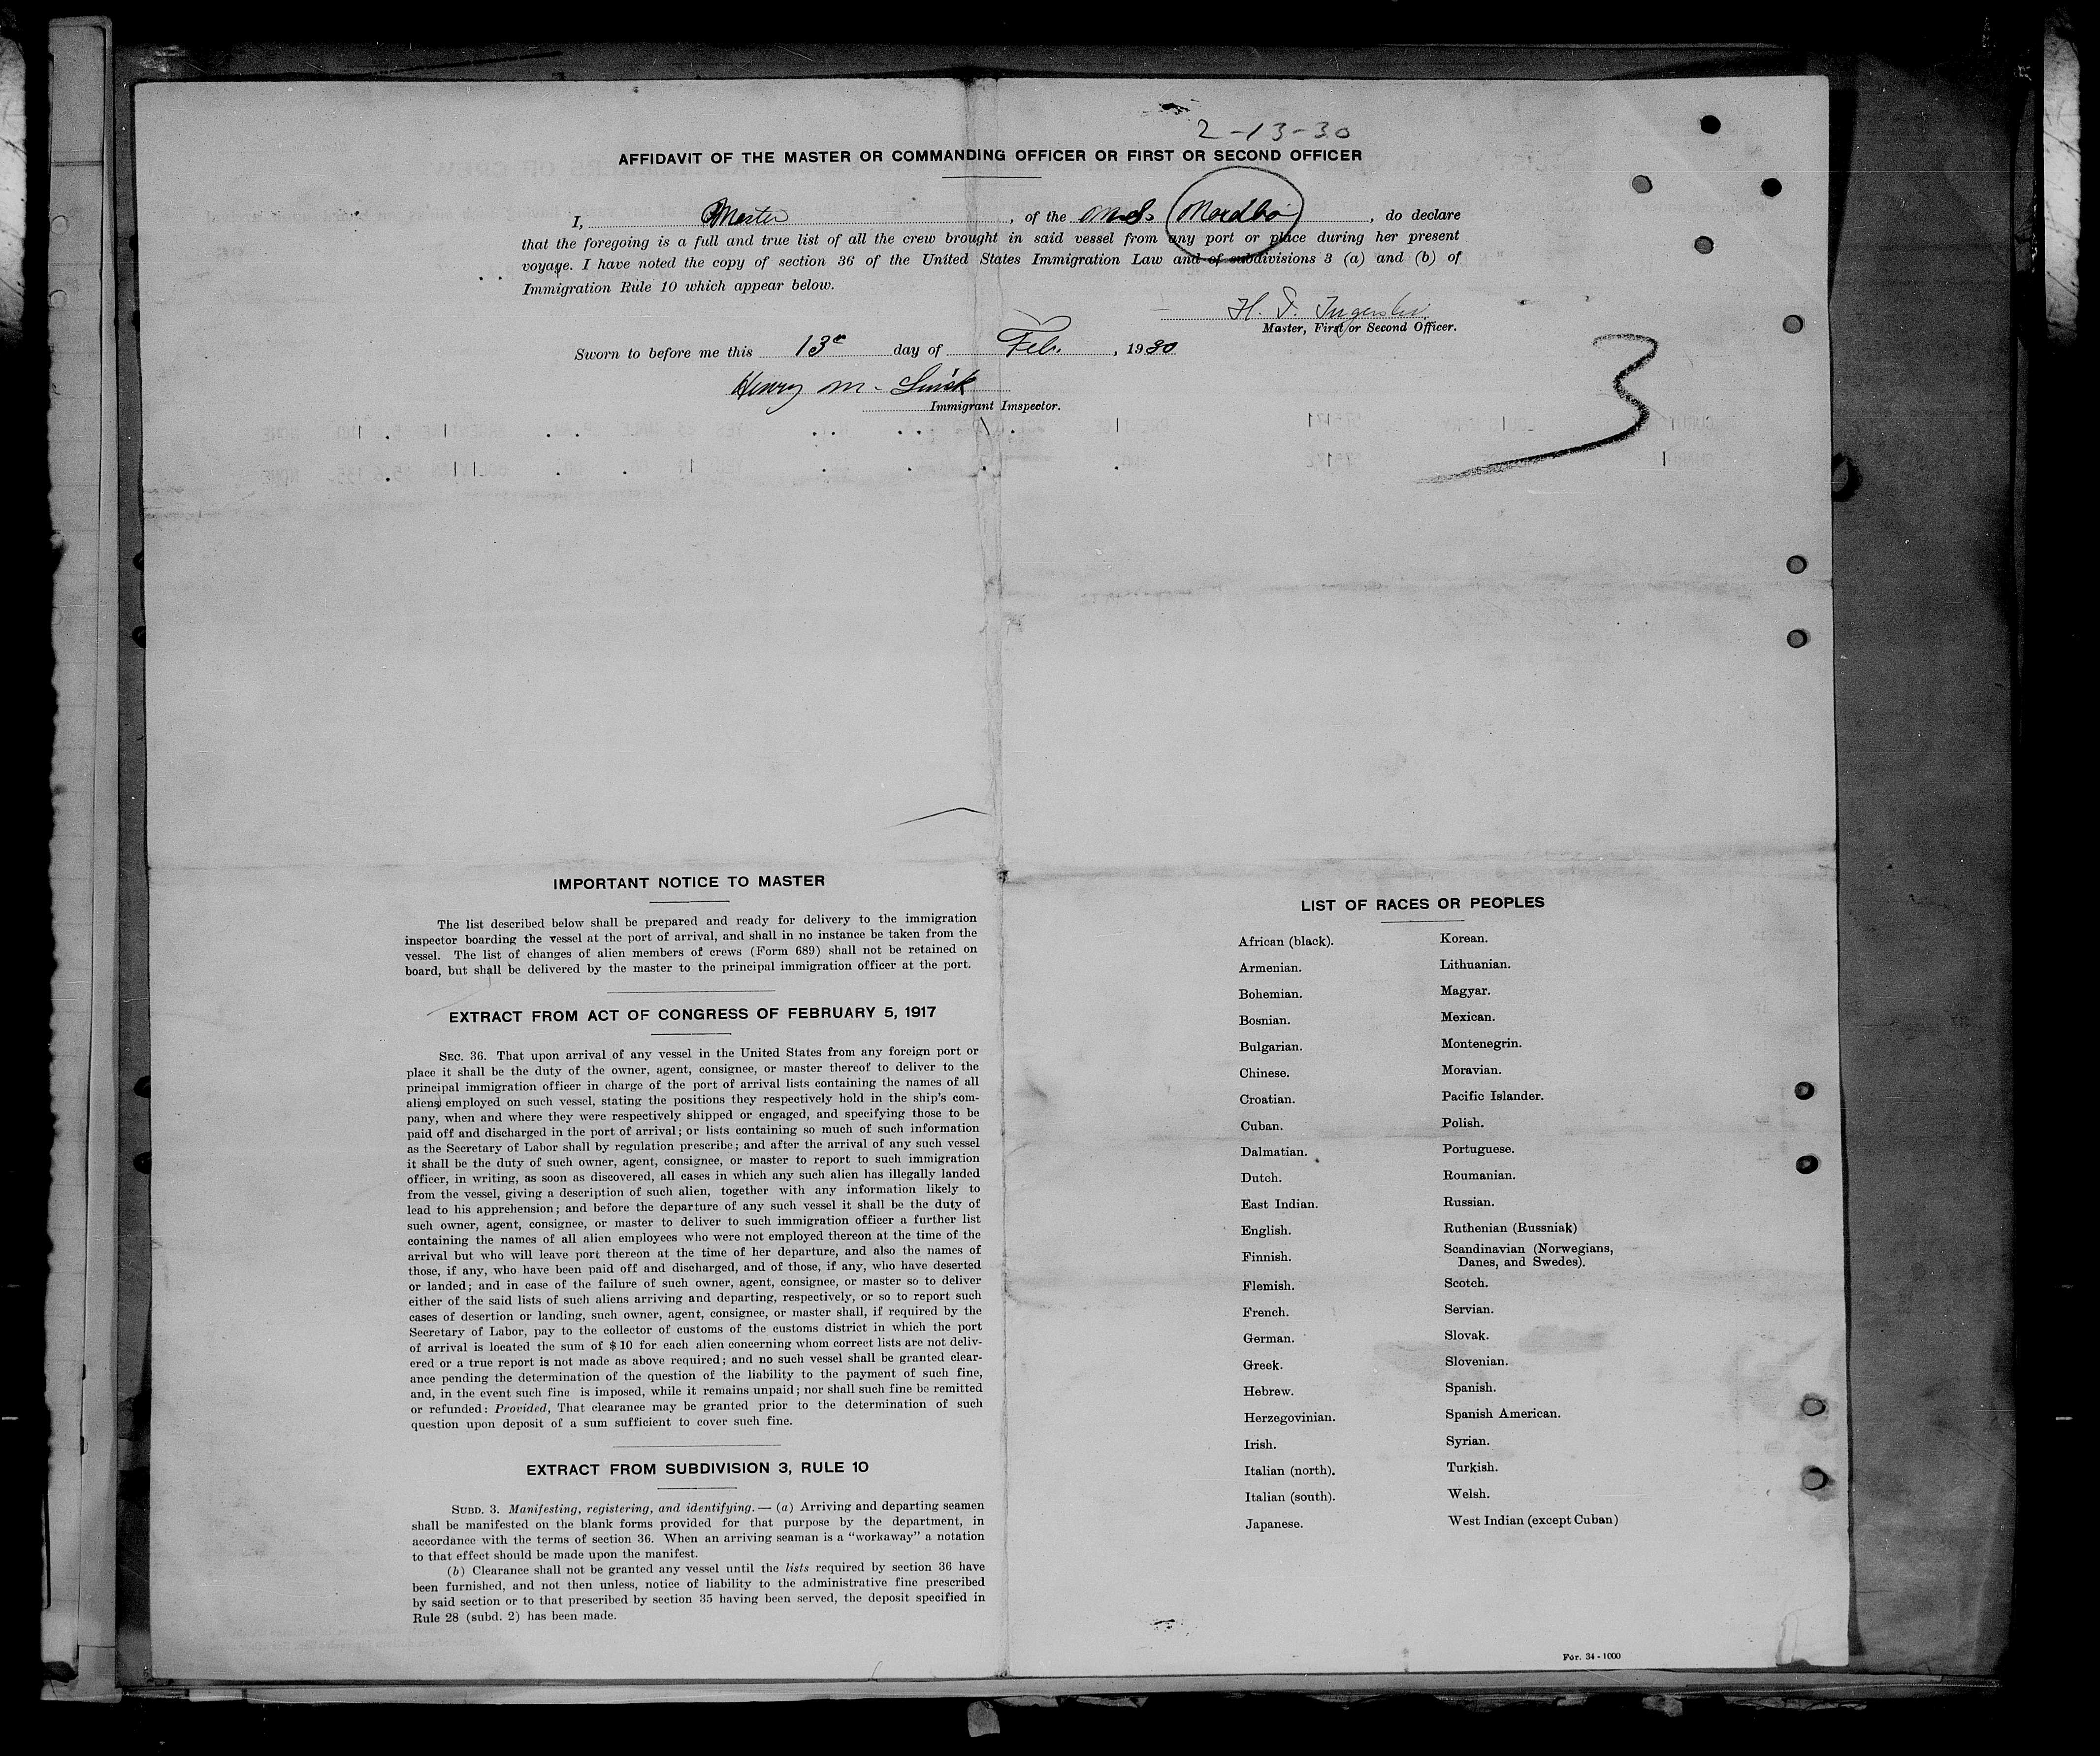 2-13-30
AFFIDAVIT OF THE MASTER OR COMMANDING OFFICER OR FIRST OR SECOND OFFICER
I, Master, of the M.S. , do declare
that the foregoing is a full and true list of all the crew brought in said vessel from any port or place during her present
voyage. I have noted the copy of section 36 of the United States Immigration Law and of subdivisions 3 (a) and (b) of
Immigration Rule 10 which appear below.
H.
Master, First or Second Officer.
Sworn to before me this 13 day of Feb., 1930
3
Henry M.
Immigrant Inspector.
IMPORTANT NOTICE TO MASTER
The list described below shall be prepared and ready for delivery to the immigration
inspector boarding the vessel at the port of arrival, and shall in no instance be taken from the
vessel. The list of changes of alien members of crews (Form 689) shall not be retained on
board, but shall be delivered by the master to the principal immigration officer at the port.
EXTRACT FROM ACT OF CONGRESS OF FEBRUARY 5, 1917
SEC. 36. That upon arrival of any vessel in the United States from any foreign port or
place it shall be the duty of the owner, agent, consignee, or master thereof to deliver to the
principal immigration officer in charge of the port of arrival lists containing the names of all
aliens employed on such vessel, stating the positions they respectively hold in the ship's com-
pany, when and where they were respectively shipped or engaged, and specifying those to be
paid off and discharged in the port of arrival; or lists containing so much of such information
as the Secretary of Labor shall by regulation prescribe; and after the arrival of any such vessel
it shall be the duty of such owner, agent, consignee, or master to report to such immigration
officer, in writing, as soon as discovered, all cases in which any such alien has illegally landed
from the vessel, giving a description of such alien, together with any information likely to
lead to his apprehension; and before the departure of any such vessel it shall be the duty of
such owner, agent, consignee, or master to deliver to such immigration officer a further list
containing the names of all alien employees who were not employed thereon at the time of the
arrival but who will leave port thereon at the time of her departure, and also the names of
those, if any, who have been paid off and discharged, and of those, if any, who have deserted
or landed; and in case of the failure of such owner, agent, consignee, or master so to deliver
either of the said lists of such aliens arriving and departing, respectively, or so to report such
cases of desertion or landing, such owner, agent, consignee, or master shall, if required by the
Secretary of Labor, pay to the collector of customs of the customs district in which the port
of arrival is located the sum of $10 for each alien concerning whom correct lists are not deliv-
ered or a true report is not made as above required; and no such vessel shall be granted clear-
ance pending the determination of the question of the liability to the payment of such fine,
and, in the event such fine is imposed, while it remains unpaid; nor shall such fine be remitted
or refunded: Provided, That clearance may be granted prior to the determination of such
question upon deposit of a sum sufficient to cover such fine.
EXTRACT FROM SUBDIVISION 3, RULE 10
SUBD. 3. Manifesting, registering, and identifying.— (a) Arriving and departing seamen
shall be manifested on the blank forms provided for that purpose by the department, in
accordance with the terms of section 36. When an arriving seaman is a "workaway" a notation
to that effect should be made upon the manifest.
(b) Clearance shall not be granted any vessel until the lists required by section 36 have
been furnished, and not then unless, notice of liability to the administrative fine prescribed
by said section or to that prescribed by section 35 having been served, the deposit specified in
Rule 28 (subd. 2) has been made.
LIST OF RACES OR PEOPLES
African (black).
Armenian.
Bohemian.
Bosnian.
Bulgarian.
Chinese.
Croatian.
Cuban.
Dalmatian.
Dutch.
East Indian.
English.
Finnish.
Flemish.
French.
German.
Greek.
Hebrew.
Herzegovinian.
Irish.
Italian (north).
Italian (south).
Japanese.
Korean.
Lithuanian.
Magyar.
Mexican.
Montenegrin.
Moravian.
Pacific Islander.
Polish.
Portuguese.
Roumanian.
Russian.
Ruthenian (Russniak)
Scandinavian (Norwegians,
Danes, and Swedes).
Scotch.
Servian.
Slovak.
Slovenian.
Spanish.
Spanish American.
Syrian.
Turkish.
Welsh.
West Indian (except Cuban)
For. 34-1000